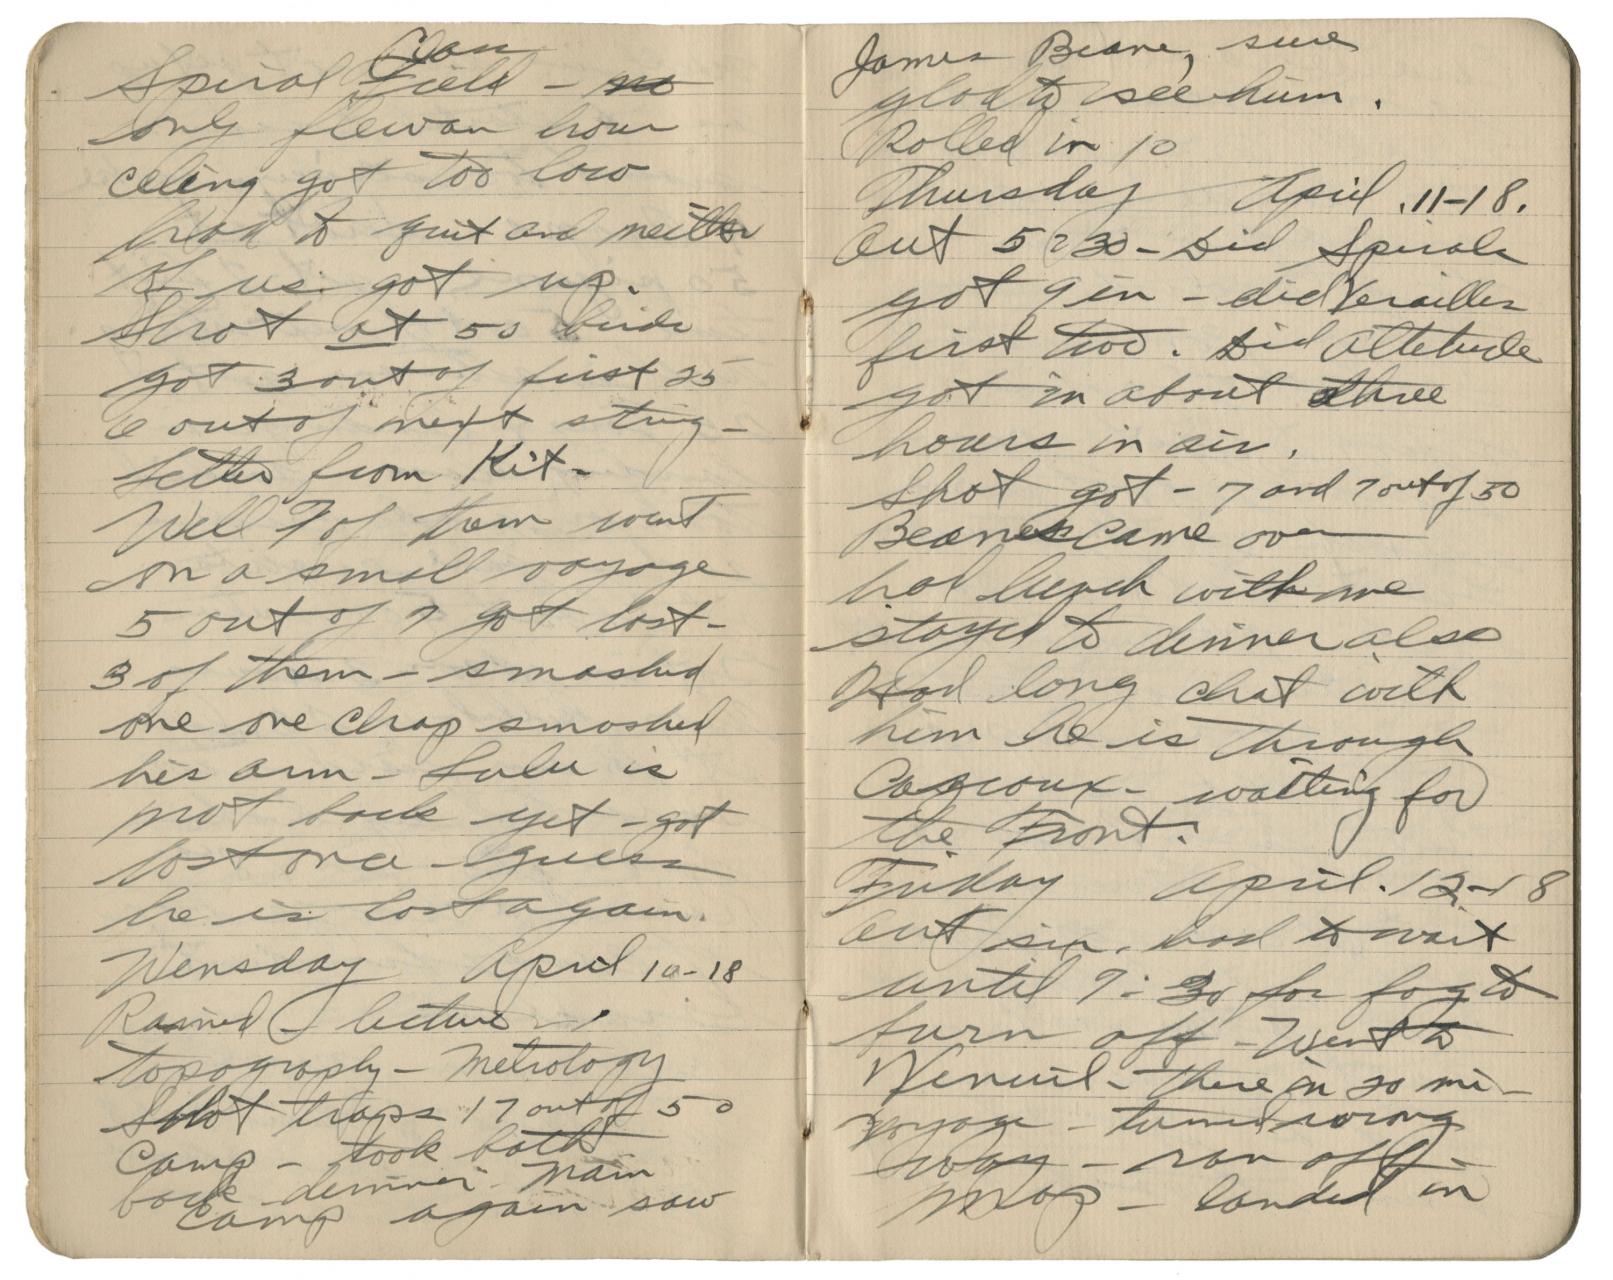 Class
Spiral Field - no
only flew an hour
celeing got too low
had to quit and neither
of us got up.
Shot at 50 birds
got 3 out of first 25
6 out of next string -
Letter from Kit -
Well 7 of them went
on a small voyage
5 out of 7 got lost -
3 of them - smashed
one one chap smashed
his arm - Lulu is
not back yet - got
lost once - guess
he is lost again.
Wensday April 10-18
Rained - lecture -
topography - Metrology
Shot traps 17 out of 50
Camp - took bath
back - dinner - Main
Camp again saw
James Beane, sure
glad to see him.
Rolled in 10
Thursday April .11-18.
Out 5:30 - Did Spirals
got 9 in - did Versailles
first two. Did Altetude
got in about three
hours in air.
Shot got - 7 and 7 out of 50
Beane came over
had lunch with me
stayed to dinner also
Had long chat with
him he is through
Casoux - waiting for
the Front.
Friday April. 12-18
Out six, had to wait
until 9:30 for fog to
turn off - Went to
there in 20 mi -
voyage - turned wrong
way - ran off
map - landed in